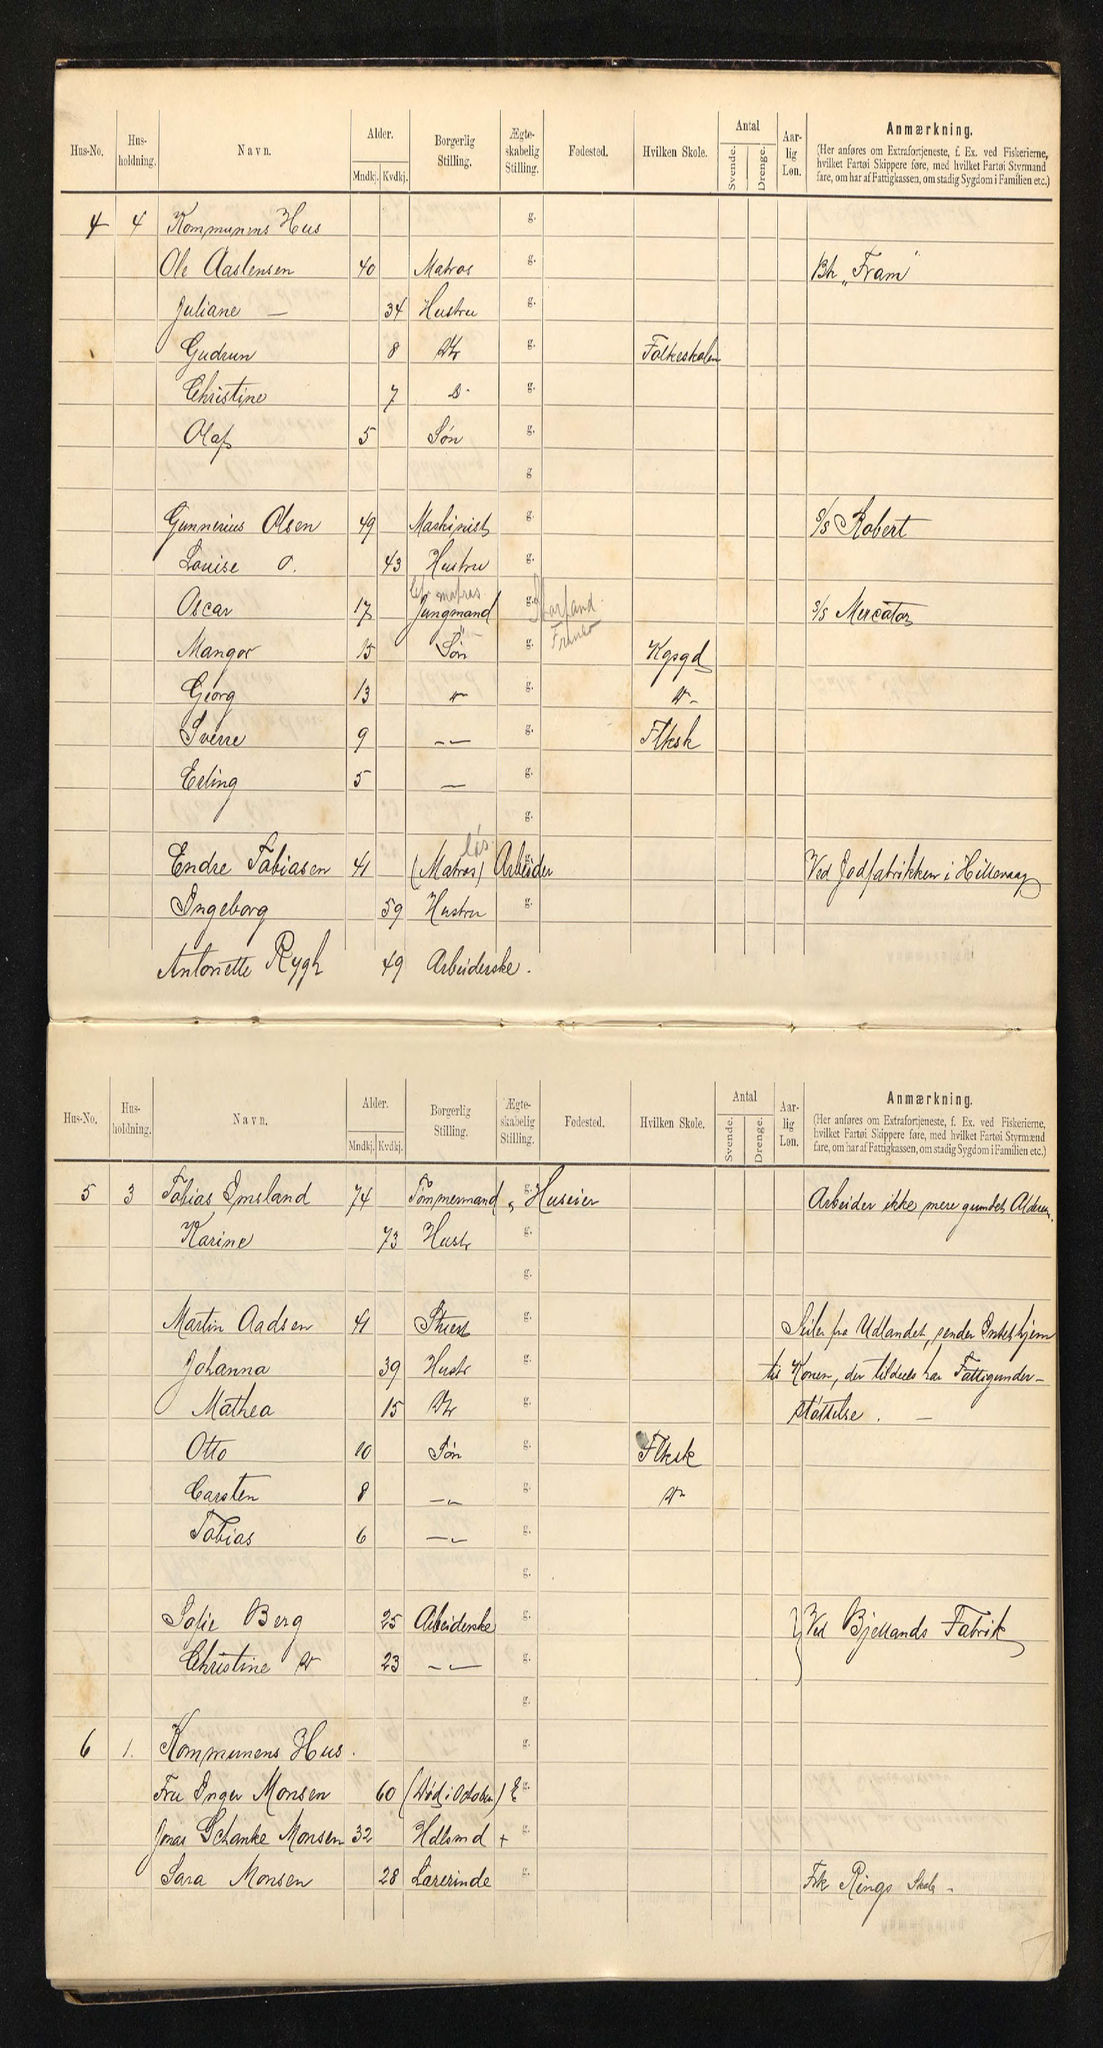 Hus-No. Hus-holdning. Navn. Alder. Mndkj. Kvdkj. Borgerlig Stilling. Ægte-skabelig Stilling. Fødested. Hvilken Skole. Antal Svende. Drenge. Aar-lig Løn. Anmærkning.
(Her anføres om Extrafortjeneste, f. Ex. ved Fiskerierne,
hvilket Fartøi Skippere føre, med hvilket Fartøi Styrmænd
fare, om har af Fattigkassen, om stadig Sygdom i Familien etc.)
4 4 Kommunens Hus g.
Ole Aaslensen 40 Matros g. Bk "Fram"
Juliane — 34 Hustru g.
Gudrun 8 Dtr g. Folkeskolen
Christine 7 D- g.
Olaf 5 Søn g.
g
Gunnerius Olsen 49 Maskinist g. S/S Robert
Louise O. 43 Hustru g.
matros
Oscar 17 Jungmand g. S/S Mercator
Mangor 15 Søn g. Kgsgd
Georg 13 " g. "
Sverre 9 —"— g. Flksk
Erling 5 — g.
g.
løs
Endre Tobiasen 41 (Matros) Arbeider g. Ved Jodfabrikken i Hillevaag
Ingeborg 59 Hustru g.
Antonette Rygh 49 Arbeiderske.
Hus-No. Hus-holdning. Navn. Alder. Mndkj. Kvdkj. Borgerlig Stilling. Ægte-skabelig Stilling. Fødested. Hvilken Skole. Antal Svende. Drenge. Aar-lig Løn. Anmærkning.
(Her anføres om Extrafortjeneste, f. Ex. ved Fiskerierne,
hvilket Fartøi Skippere føre, med hvilket Fartøi Styrmænd
fare, om har af Fattigkassen, om stadig Sygdom i Familien etc.)
5 3 Tobias Imsland 74 Tømmermand g. Huseier Arbeider ikke mere grundet Alderen.
Karine 73 Hustr g.
g.
Martin Aadsen 41 g. Seiler fra Udlandet, sender Intet hjem
Johanna 39 Hustr g. til Konen, der tildels har Fattigunder-
Mathea 15 Dtr g. støttelse. —
Otto 10 Søn g. Flksk
Carsten 8 —"— g. "
Tobias 6 —"— g.
g.
Sofie Berg 25 Arbeiderske g. Ved Bjellands Fabrik
Christine " 23 —"— g.
g.
6 1. Kommunens Hus. g.
Fru Inger Monsen 60 (Død i October) E g.
Jonas Schanke Monsen 32 Hdlsmd + g.
Sara Monsen 28 Lærerinde g. Frk Rings Skole -